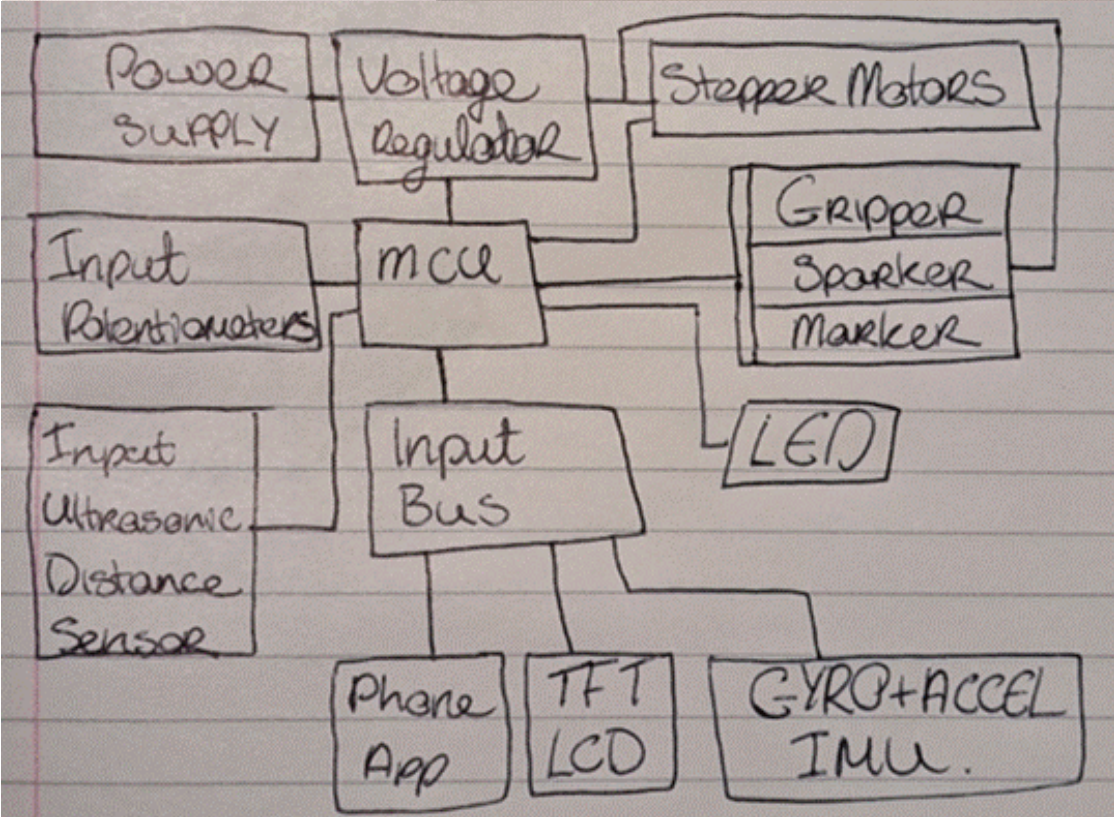 Power
Supply
Voltage
Regulator
Stepper Motors
Input
Potentiometers
MCU
Gripper
Sparker
Marker
Input
Ultrasonic
Distance
Sensor
Input
Bus
LED
Phone
App
TFT
LCD
GYRO+ACCEL
IMU.